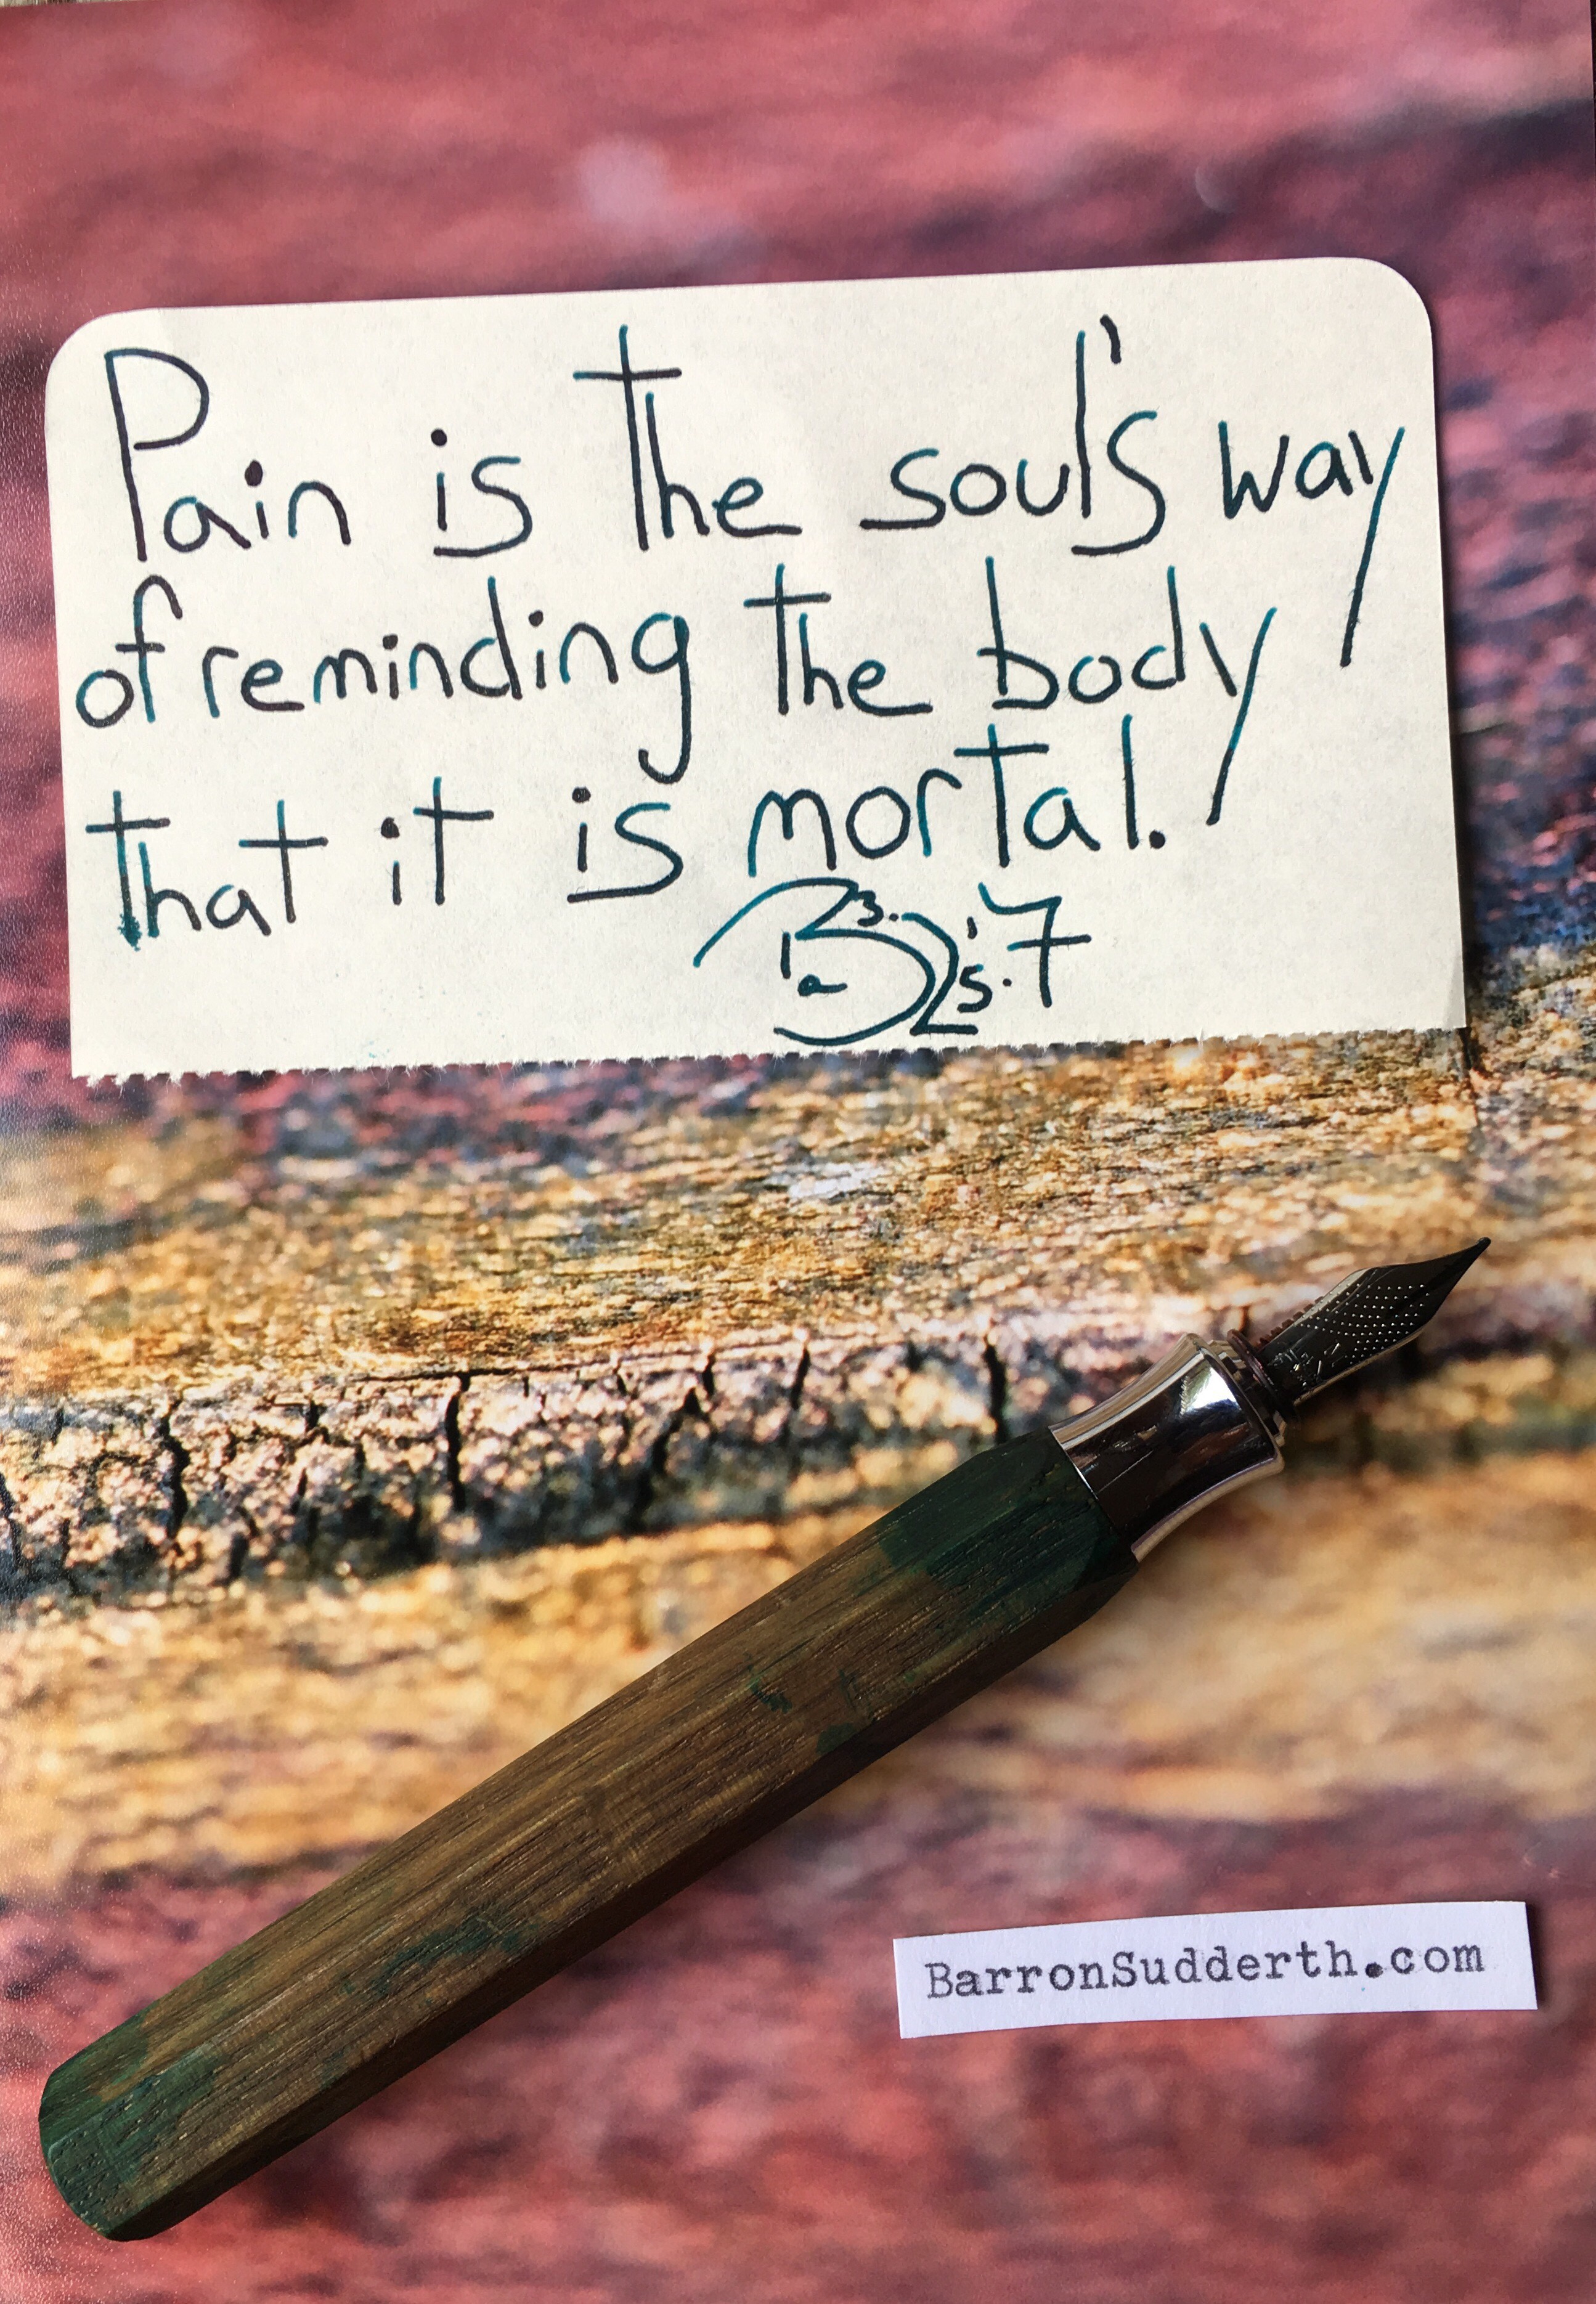 Pain is the soul's way
of reminding the body
that it is mortal.
BarronSudderth.com